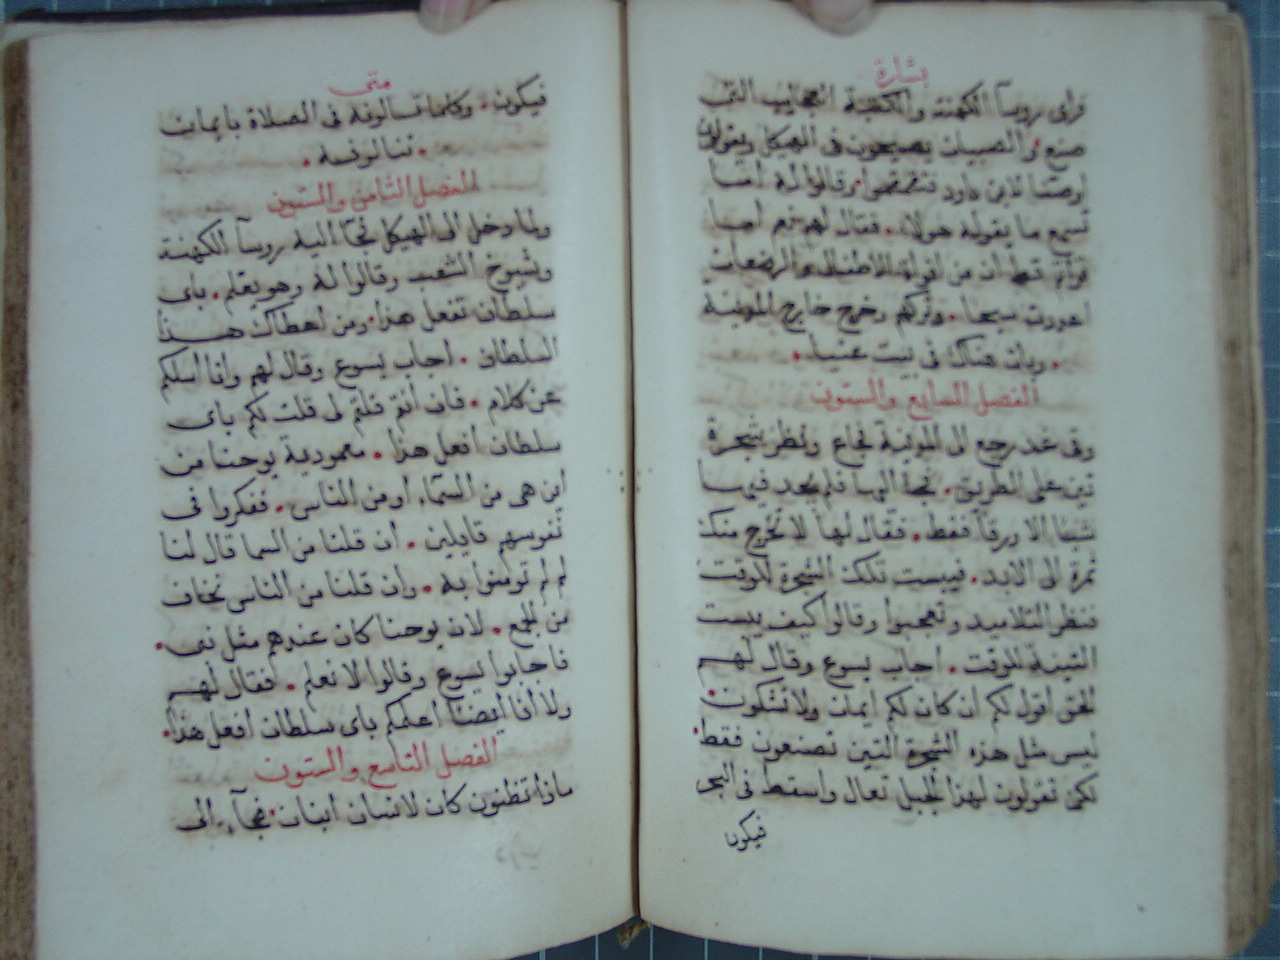 بشارة
فراى روسآ الكهنة والكتبة العجايب التى
صنع والصبيان يصيحون فى الهيكل ويقولون
اوصنا لابن داود تقمقموا وقالوا له اما
تسمع ما يقوله هولاء. فقال لهم نعم اما
قراتم قط ان من افواه الاطفال والرضعان
اعددت سبحا. وتركهم وخرج خارج المدينة
. وبات هناك فى بيت عنيا.
الفصل السابع والستون
وفى غد رجع الى المدينة فجاع ونظر شجرة
تين على الطريق. فجآ اليها فلم يجد فيها
شيئا الا ورقا فقط. فقال لها لا تخرج منك
ثمرة الى الابد. فيبست تلك الشجرة للوقت
فنظر التلاميذ وتعجبوا وقالوا كيف يبست
التينة للوقت. اجاب يسوع وقال لهم
الحق اقول لكم ان كان لكم ايمان ولا تشكون
ليس مثل هذه الشجرة التين تصنعون فقط.
لكن تقولون لهذا الجبل تعال واسقط فى البحر
فيكون
متى
فيكون. وكلما تسالونه فى الصلاة بايمان
. تنالونه.
الفصل الثامن والستون
ولما دخل الى الهيكل فجآ اليه روسآ الكهنة
وشيوخ الشعب وقالوا له وهو يعلم. باى
سلطان تفعل هذا. ومن اعطاك هذا
السلطان. اجاب يسوع وقال لهم وانا اسلكم
عن كلام. فان انتم قلتم لى قلت لكم باى
سلطان افعل هذا. معمودية يوحنا من
اين هى من السمآء او من الناس. ففكروا فى
نفوسهم قايلين. ان قلنا من السما قال لنا
لم لم تومنوا به. وان قلنا من الناس نخاف
من الجمع. لان يوحنا كان عندهم مثل نبى.
فاجابوا يسوع وقالوا لا نعلم. فقال لهم
ولا انا ايضا اعلمكم باى سلطان افعل هذا.
الفصل التاسع والستون
ماذا تظنون كان لانسان ابنان. فجآء الى